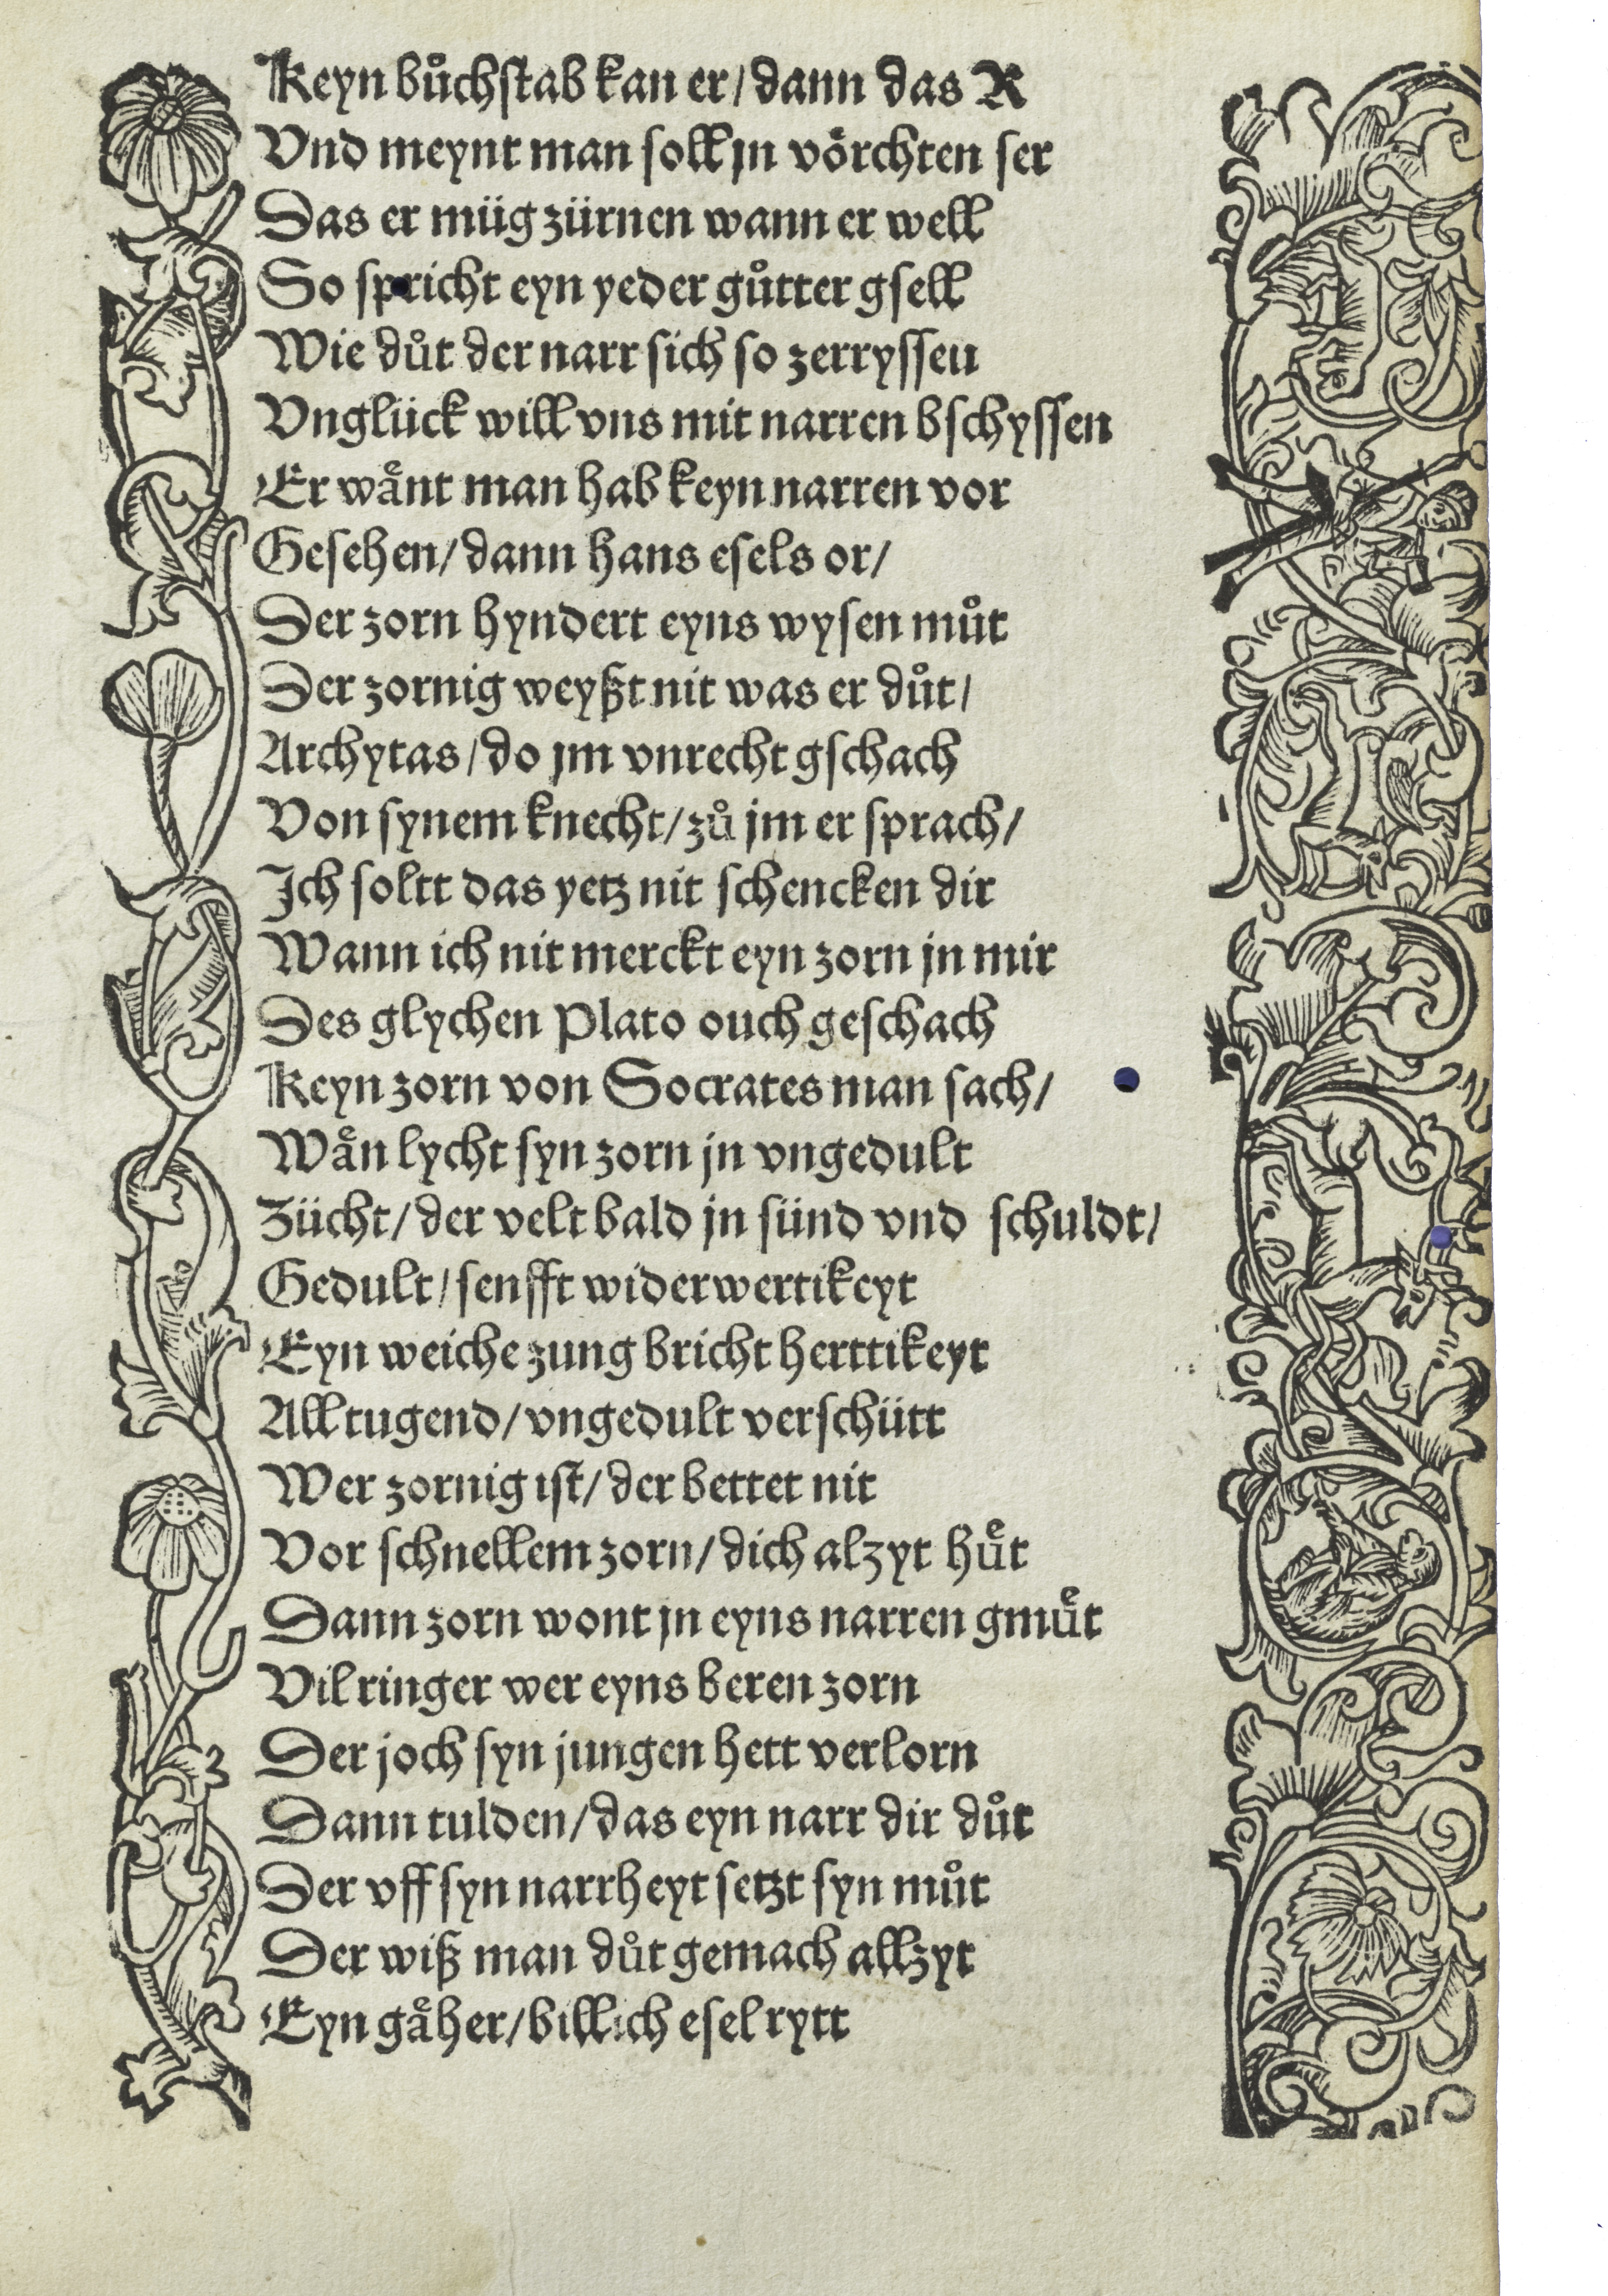 Keyn buͦchstab kan er / dann das R
Vnd meynt man soll jn voͤrchten ser
Das er müg zürnen wann er well
So spricht eyn yeder guͦtter gsell
Wie duͦt der narr sich so zerryssen
Vnglück will vns mit narren bschyssen
Er waͤnt man hab keyn narren vor
Gesehen / dann hans esels or /
Der zorn hyndert eyns wysen muͦt
Der zornig weyßt nit was er duͦt /
Archytas / do jm vnrecht gschach
Von synem knecht / zuͦ jm er sprach /
Ich soltt das yetz nit schencken dir
Wann ich nit merckt eyn zorn jn mir
Des glychen Plato ouch geschach
Keyn zorn von Socrates man sach /
Waͤn lycht syn zorn jn vngedult
Zücht / der velt bald jn sünd vnd schuldt /
Gedult / senfft widerwertikeyt
Eyn weiche zung bricht herttikeyt
All tugend / vngedult verschütt
Wer zornig ist / der bettet nit
Vor schnellem zorn / dich alzyt huͤt
Dann zorn wont jn eyns narren gmuͤt
Vil ringer wer eyns beren zorn
Der joch syn jungen hett verlorn
Dann tulden / das eyn narr dir duͦt
Der vff syn narrheyt setzt syn muͦt
Der wiß man duͦt gemach allzyt
Eyn gaͤher / billich esel rytt